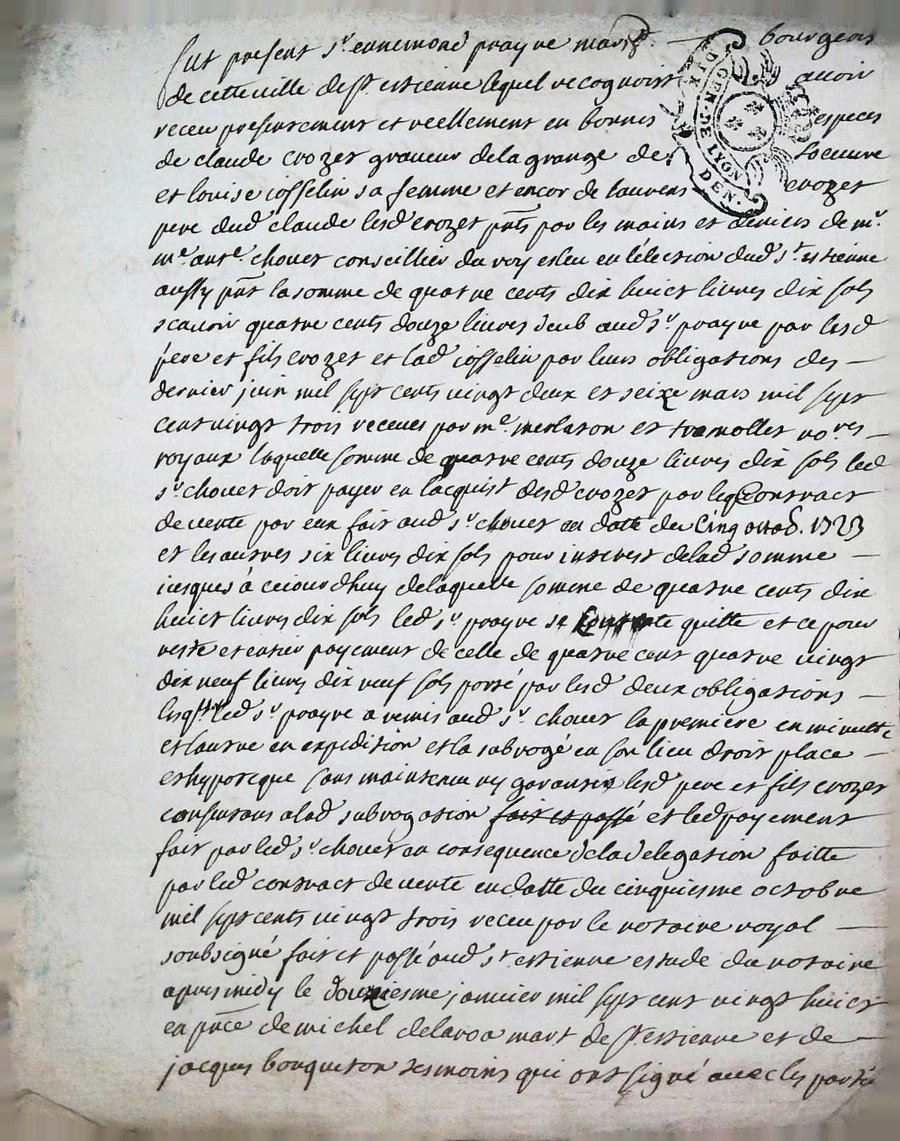 fut present sr. ennemond prayre mard. — bourgeois
de cette ville de st. estienne lequel recognoist avoir
receu presentement et reellement en bonnes especes
de claude crozet graveur de la grange de loeuvre
et louise josselin sa femme et encor de laurens crozet
pere dud claude lesd crozet pnts par les mains et deniers de mr.
me. ante. chovet conseillier du roy esleu en lelection dud st. estienne
aussy pnt la somme de quatre cents dix huict livres dix sols
scavoir quatre cents douze livres deub aud sr. prayre par lesd
pere et fils crozet et lad josselin par leurs obligations des —
dernier juin mil sept cents vingt deux et seize mars mil sept
cent vingt trois receues par me. merlason et tremollet nores. —
royaux laquelle somme de quatre cents douze livres dix sols led
sr. chovet doit payer en lacquist desd crozet par le contract
de vente par eux fait aud sr. chovet en datte du cinq 1723
et les autres six livres dix sols pour interest de lad somme —
jusques à cejourdhuy de laquelle somme de quatre cents dix
huict livres dix sols led sr. prayre se contente quitte et ce pour
reste et entier payement de celle de quatre cent quatre vingt
dix neuf livres dix neuf sols porté par lesd deux obligations —
lesqlles led sr. prayre a remis aud sr. chovet la premiere en minutte
et lautre en expedition et la subrogé en son lieu droit place —
et hypoteque sans maintenue ny garantie lesd pere et fils crozet
consentans a lad subrogation fait et passé et led payement
fait par led sr. chovet en consequence de la delegation faitte
par led contract de vente en datte du cinquiesme octobre
mil sept cents vingt trois receu par le notaire royal —
soubsigné fait et passé aud st estienne estude du notaire
apres midy le douziesme janvier mil sept cent vingt huict
en pnce de michel delaroa mart de st. estienne et de —
jacques bouqueton tesmoins qui ont signé avec les partie
DIX GEN. DE LYON DEN.